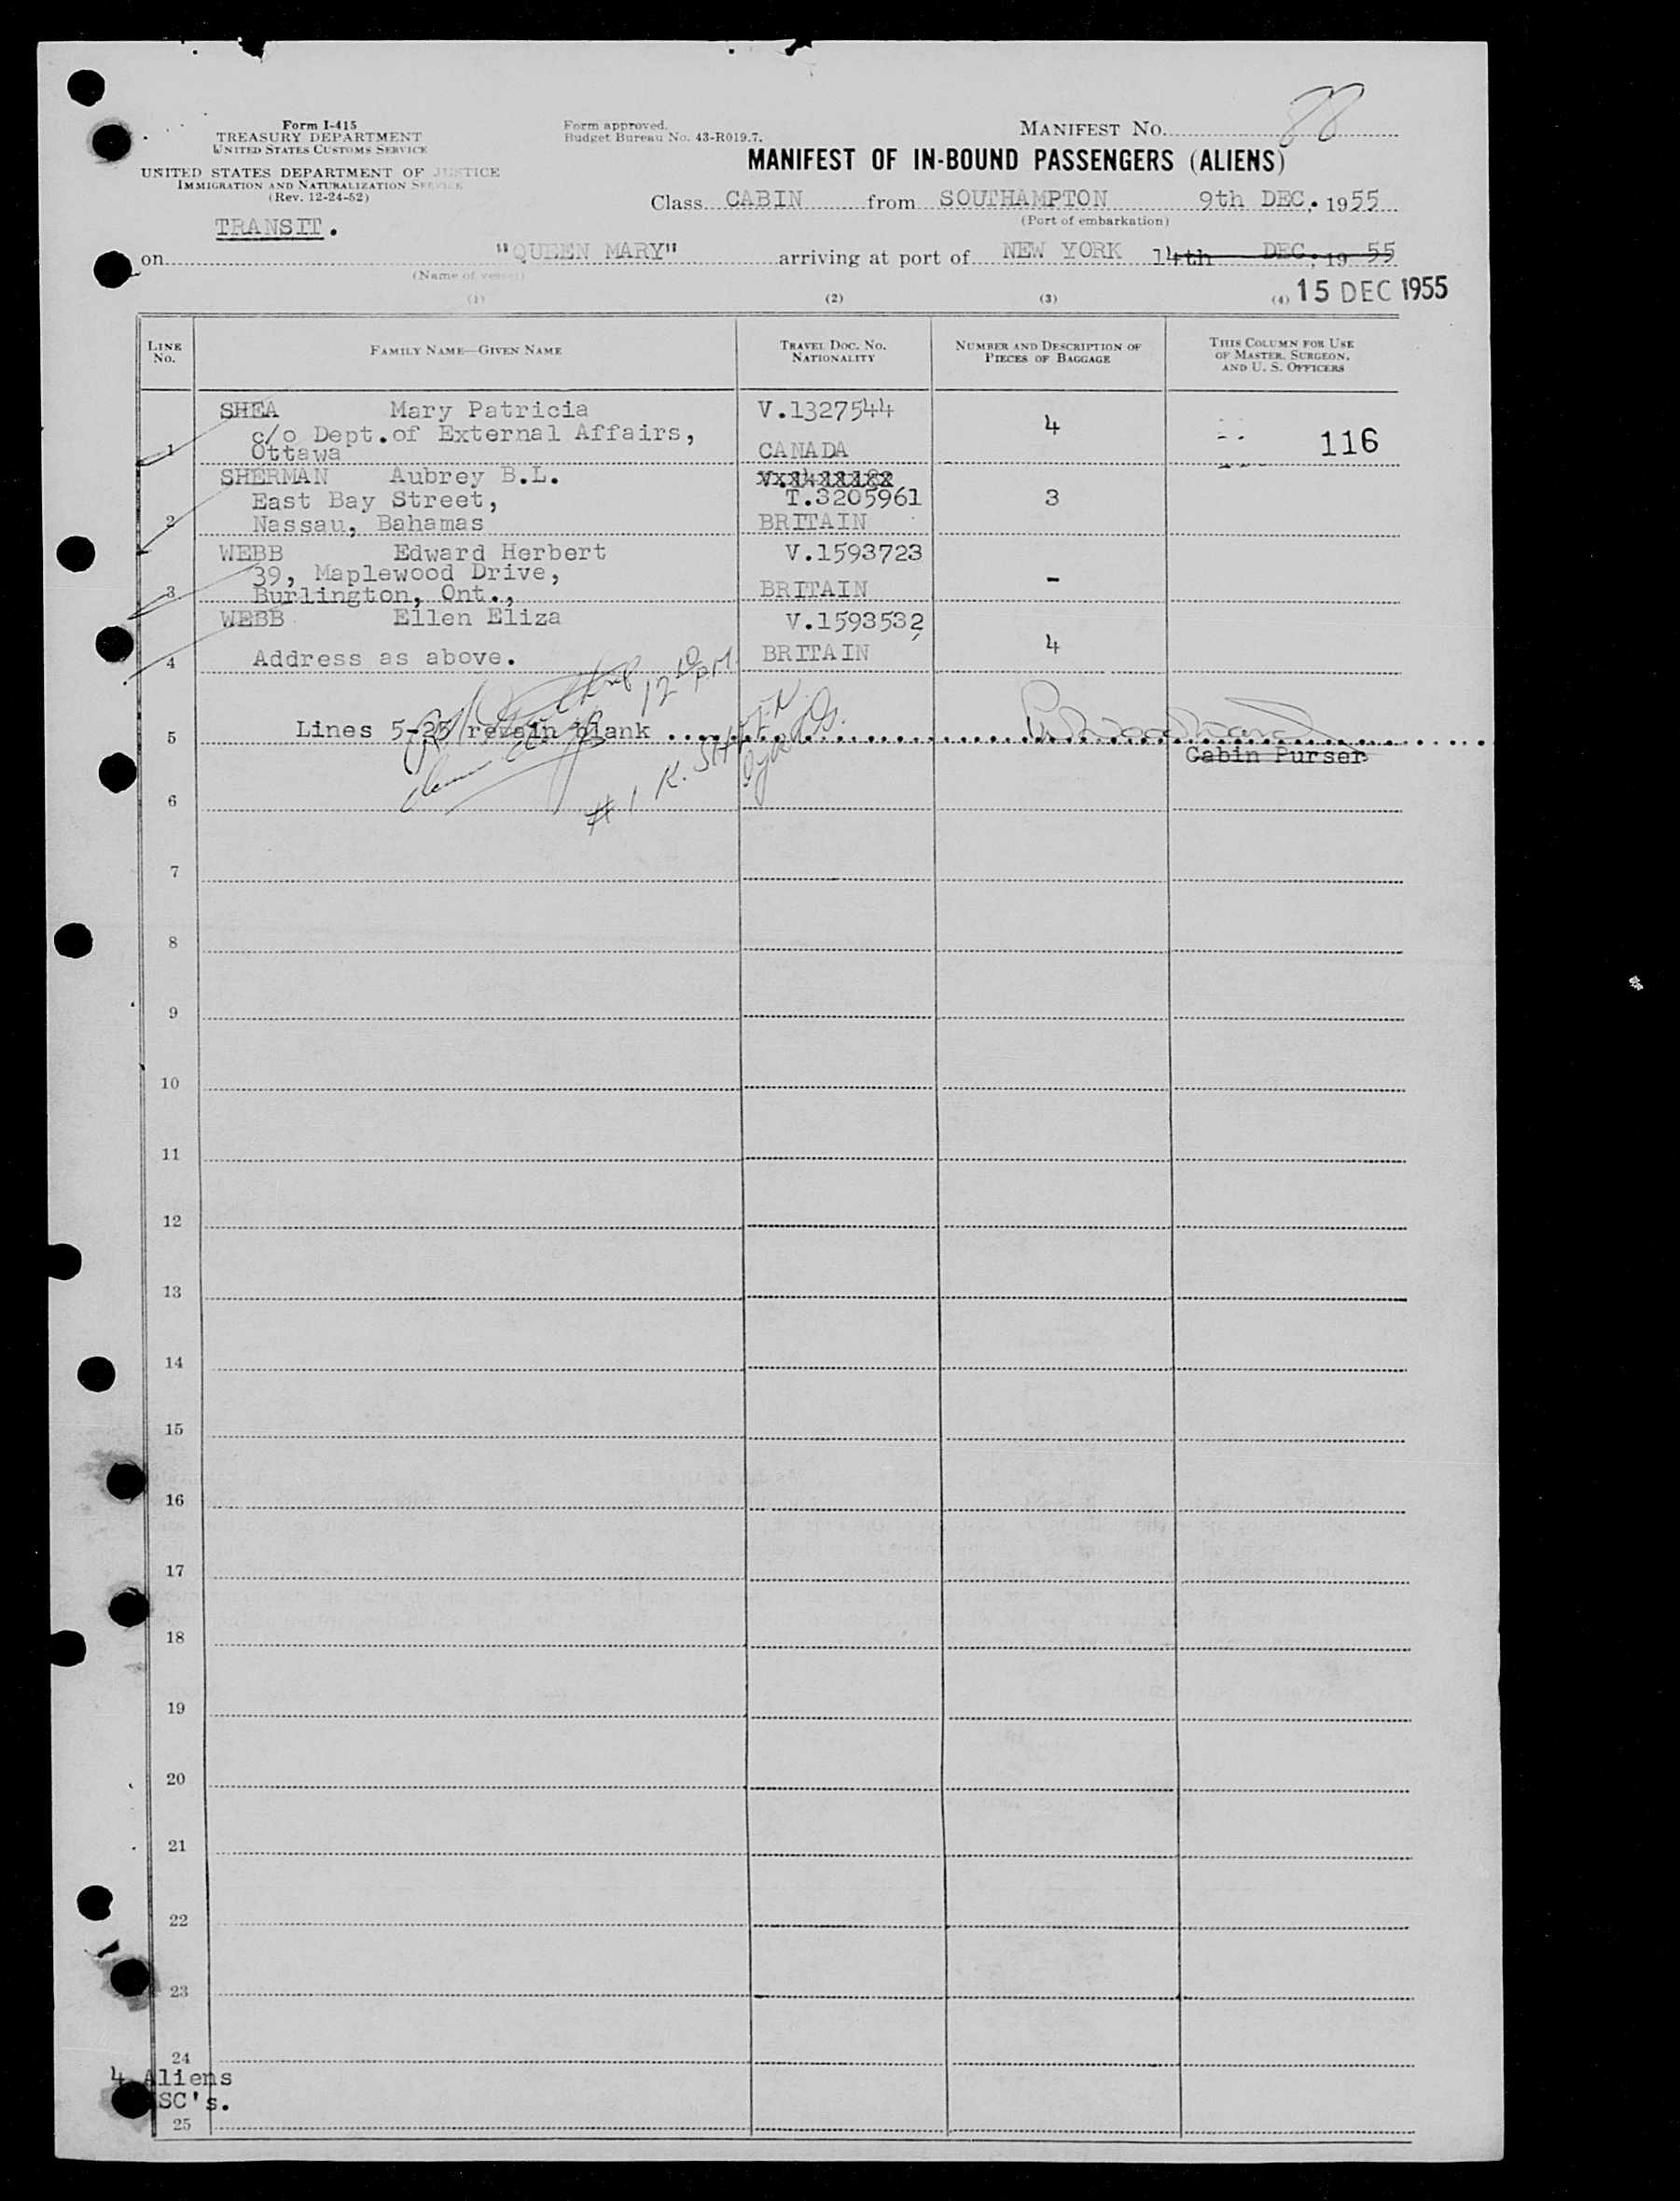 Form I-415
TREASURY DEPARTMENT
UNITED STATES CUSTOMS SERVICE
UNITED STATES DEPARTMENT OF JUSTICE
IMMIGRATION AND NATURALIZATION SERVICE
(Rev. 12-24-52)
TRANSIT.
Form approved.
Budget Bureau No. 43-R019.7.
MANIFEST NO. 88
MANIFEST OF IN-BOUND PASSENGERS (ALIENS)
Class CABIN from SOUTHAMPTON 9th DEC. 1955
(Port of embarkation)
on "QUEEN MARY" arriving at port of NEW YORK 14th DEC. 19 55
(Name of vessel)
15 DEC 1955
(1) (2) (3) (4)
LINE NO. FAMILY NAME—GIVEN NAME TRAVEL DOC. NO. NATIONALITY NUMBER AND DESCRIPTION OF PIECES OF BAGGAGE THIS COLUMN FOR USE OF MASTER, SURGEON, AND U. S. OFFICERS
SHEA Mary Patricia V.1327544
c/o Dept.of External Affairs, 4
1 Ottawa CANADA 116
SHERMAN Aubrey B.L.
East Bay Street, T.3205961 3
2 Nassau, Bahamas BRITAIN
WEBB Edward Herbert V.1593723
39, Maplewood Drive, -
3 Burlington, Ont., BRITAIN
WEBB Ellen Eliza V.1593532
4 Address as above. BRITAIN 4
5 Lines 5-25 remain blank
Cabin Purser
# 1 K.
6
7
8
9
10
11
12
13
14
15
16
17
18
19
20
21
22
23
24
4 Aliens
SC's.
25